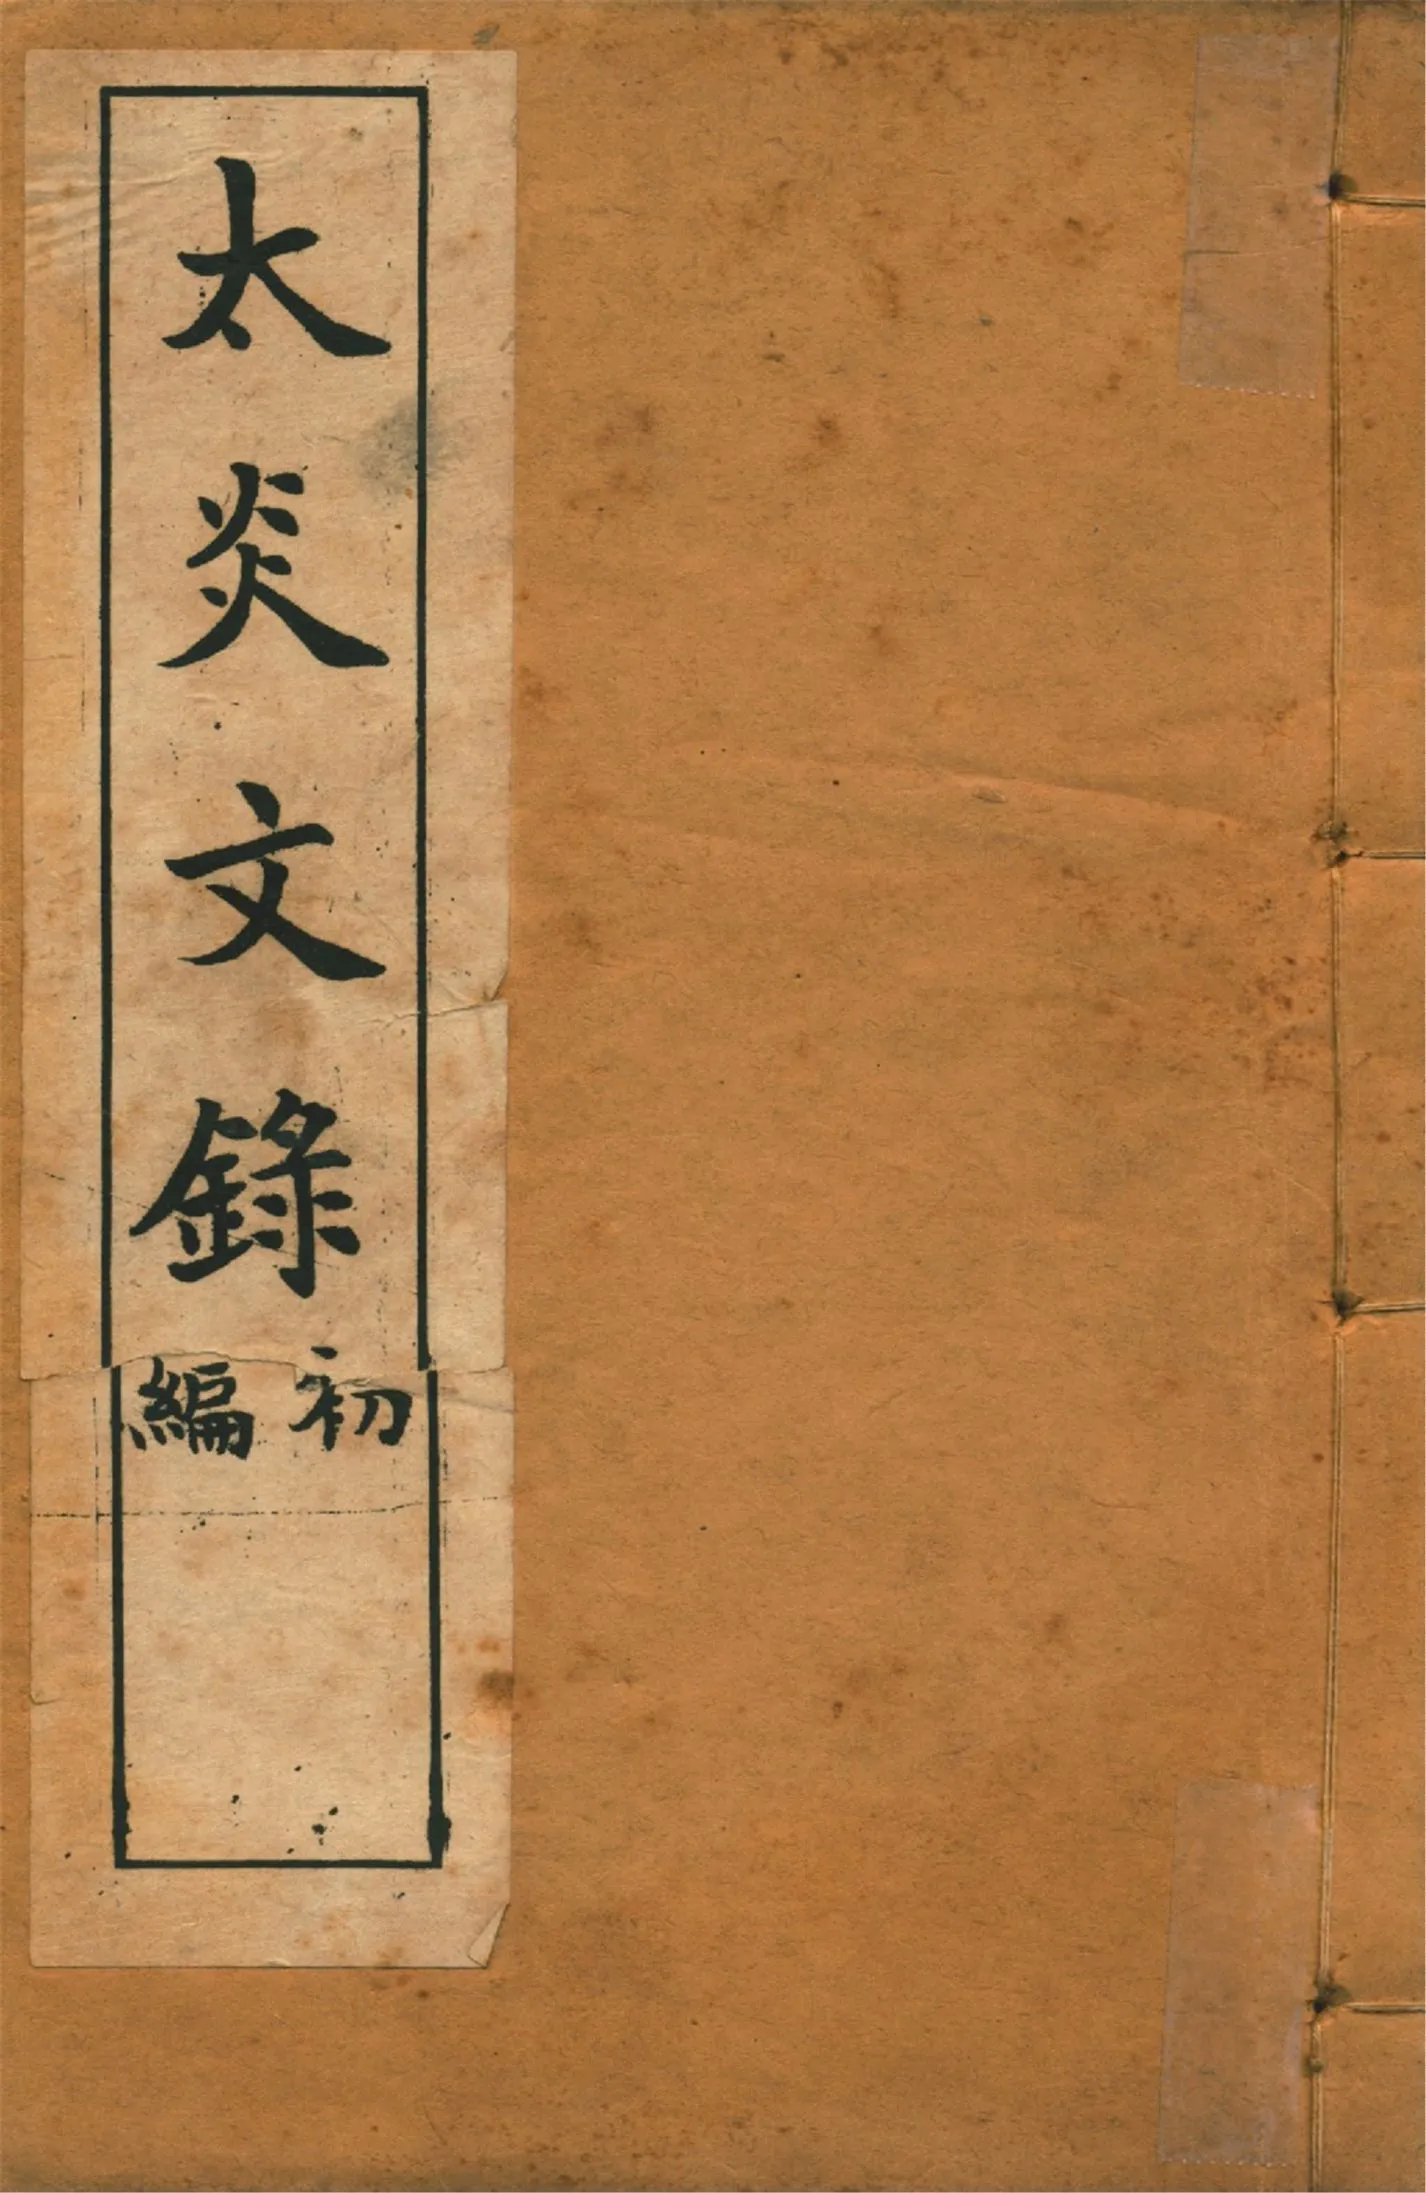 太炎文錄
初編